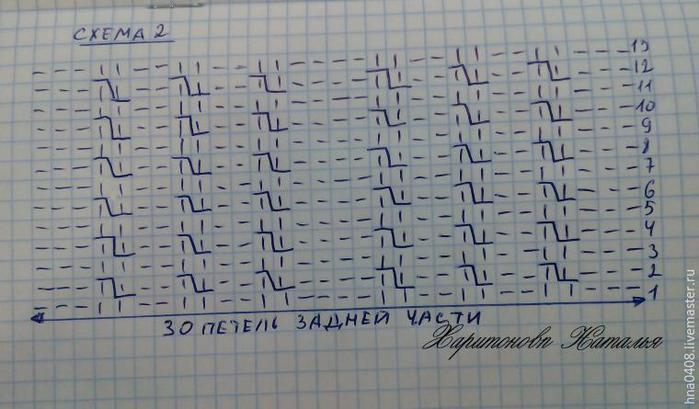 СХЕМА 2
13
12
11
10
9
8
7
6
5
4
3
2
1
30 ПЕТЕЛЬ ЗАДНЕЙ ЧАСТИ
Харитонова Наталья
hna0408.livemaster.ru